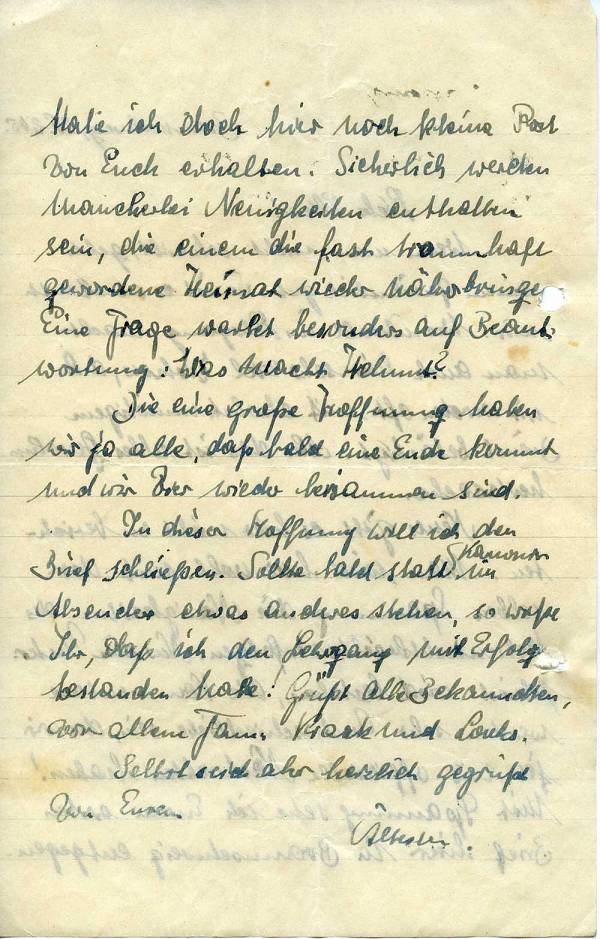 Habe ich doch hier noch kleine Post
von Euch erhalten. Sicherlich werden
mancherlei Neuigkeiten enthalten
sein, die einem die fast traumhaft
gewordene Heimat wieder näherbringe
Eine Frage wartet besonders auf Beant-
wortung: Was macht Helmut?
Die eine große Hoffnung haben
wir ja alle, daß bald eine Ende kommt
und wir wieder beisammen sind.
In dieser Hoffnung will ich den
Brief schließen. Sollte bald statt Kanonier im
Absender etwas anderes stehen, so wißt
Ihr, daß ich den Lehrgang mit Erfolg
bestanden habe! Grüßt alle Bekannten,
vor allem Fam. Kraak und
Selbst seid aber herzlich gegrüßt
von Euren